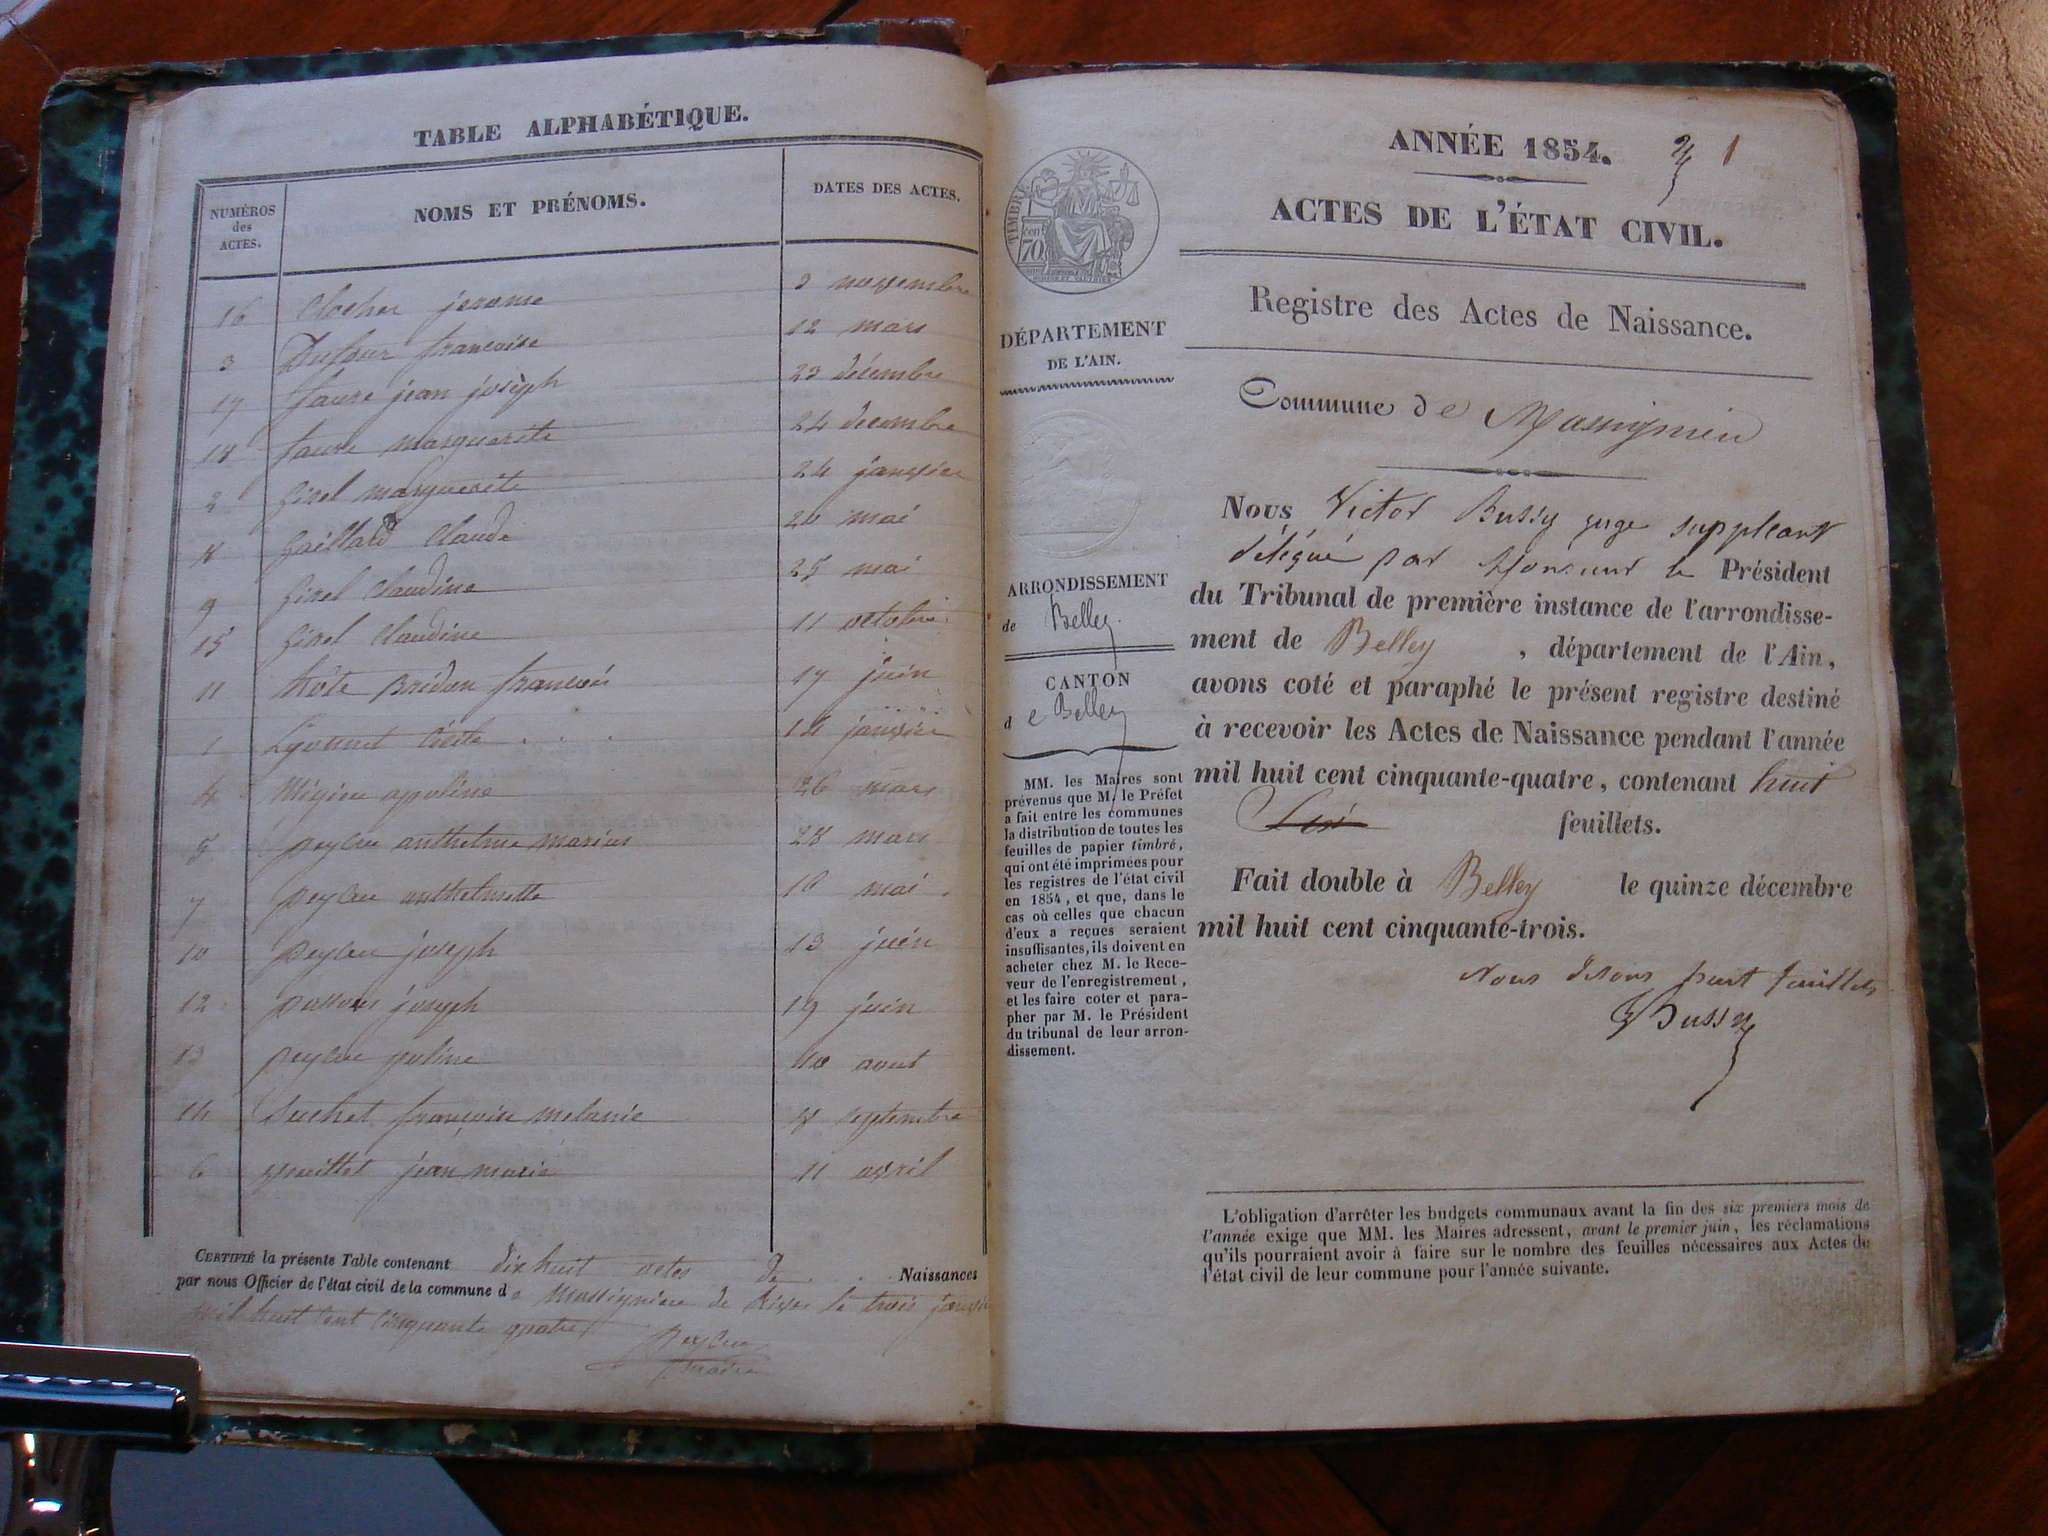 TABLE ALPHABÉTIQUE.
NUMÉROS
des
ACTES.
NOMS ET PRÉNOMS.
DATES DES ACTES.
16 Clocher jerome 2 novembre
3 Dufour françoise 12 mars
17 faure jean joseph 23 décembre
18 faure marguerite 24 decembre
2 girel marguerite 24 janvier
8 gaillard Claude 20 mai
9 girel Claudine 25 mai
15 girel Claudine 11 octobre
11 françois 17 juin
1 14 janvier
4 Migieu apoline 26 mars
5 peyzieu anthelme marius 28 mars
7 10 mai
10 joseph 13 juin
12 joseph 19 juin
13 10 aout
14 Suchet françoise melanie 8 septembre
6 jean marie 11 avril
CERTIFIÉ la présente Table contenant dix huit actes de Naissances
par nous Officier de l'état civil de la commune de Massignieu de Rives le trois janvier
mil huit cent cinquante quatre
maire
ANNÉE 1854. 1
ACTES DE L'ÉTAT CIVIL.
Registre des Actes de Naissance.
TIMBRE
cen
70
DÉPARTEMENT
DE L'AIN.
ARRONDISSEMENT
de Belley.
CANTON
de Belley
MM. les Maires sont
prévenus que M. le Préfet
a fait entre les communes
la distribution de toutes les
feuilles de papier timbré,
qui ont été imprimées pour
les registres de l'état civil
en 1854, et que, dans le
cas où celles que chacun
d'eux a reçues seraient
insuffisantes, ils doivent en
acheter chez M. le Rece-
veur de l'enregistrement,
et les faire coter et para-
pher par M. le Président
du tribunal de leur arron-
dissement.
Commune de Massignieu
Nous Victor Bussy juge suppleant
délégué par Monsieur le Président
du Tribunal de première instance de l'arrondisse-
ment de Belley, département de l'Ain,
avons coté et paraphé le présent registre destiné
à recevoir les Actes de Naissance pendant l'année
mil huit cent cinquante-quatre, contenant huit
feuillets.
Fait double à Belley le quinze décembre
mil huit cent cinquante-trois.
Nous disons huit feuillets
Bussy
L'obligation d'arrêter les budgets communaux avant la fin des six premiers mois de
l'année exige que MM. les Maires adressent, avant le premier juin, les réclamations
qu'ils pourraient avoir à faire sur le nombre des feuilles nécessaires aux Actes de
l'état civil de leur commune pour l'année suivante.